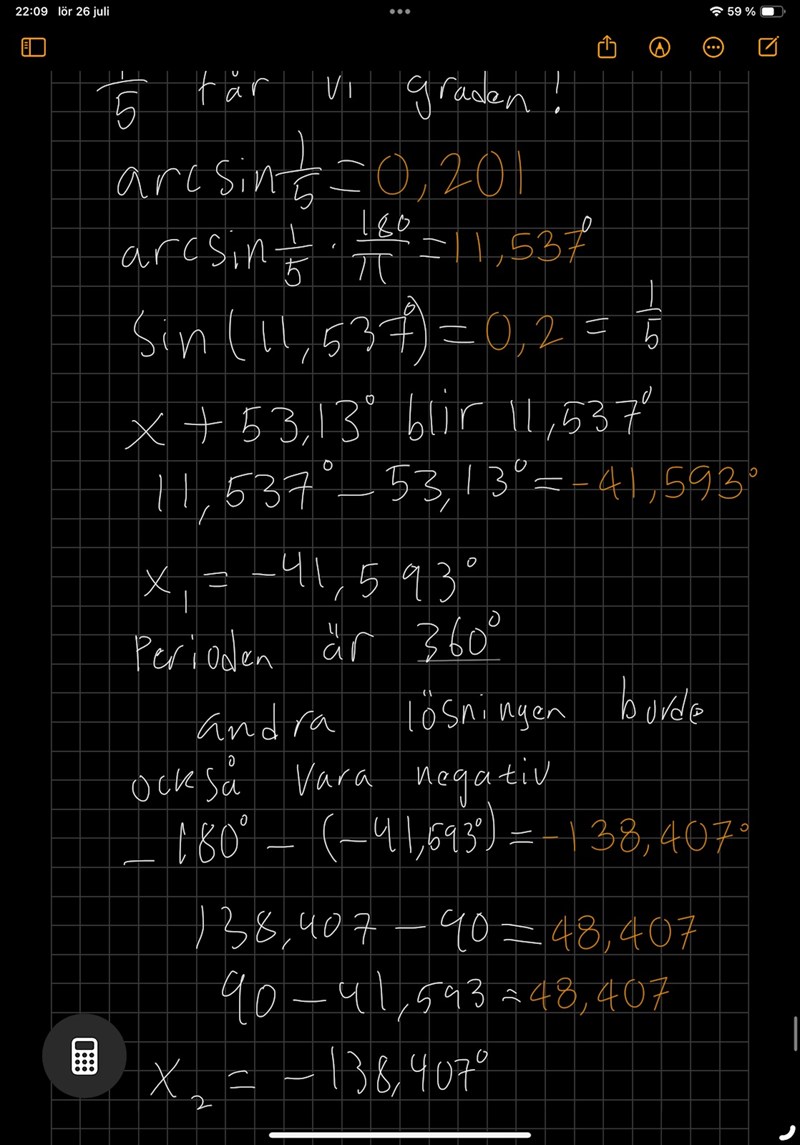 22:09 lör 26 juli
59 %
5 får vi graden!
arcsin 1/5 = 0,201
arcsin 1/5 · 180/π = 11,537°
sin(11,537°) = 0,2 = 1/5
x + 53,13° blir 11,537°
11,537° - 53,13° = -41,593°
x₁ = -41,593°
Perioden är 360°
andra lösningen borde
också vara negativ
-180° - (-41,593°) = -138,407°
138,407 - 90 = 48,407
90 - 41,593 = 48,407
x₂ = -138,407°